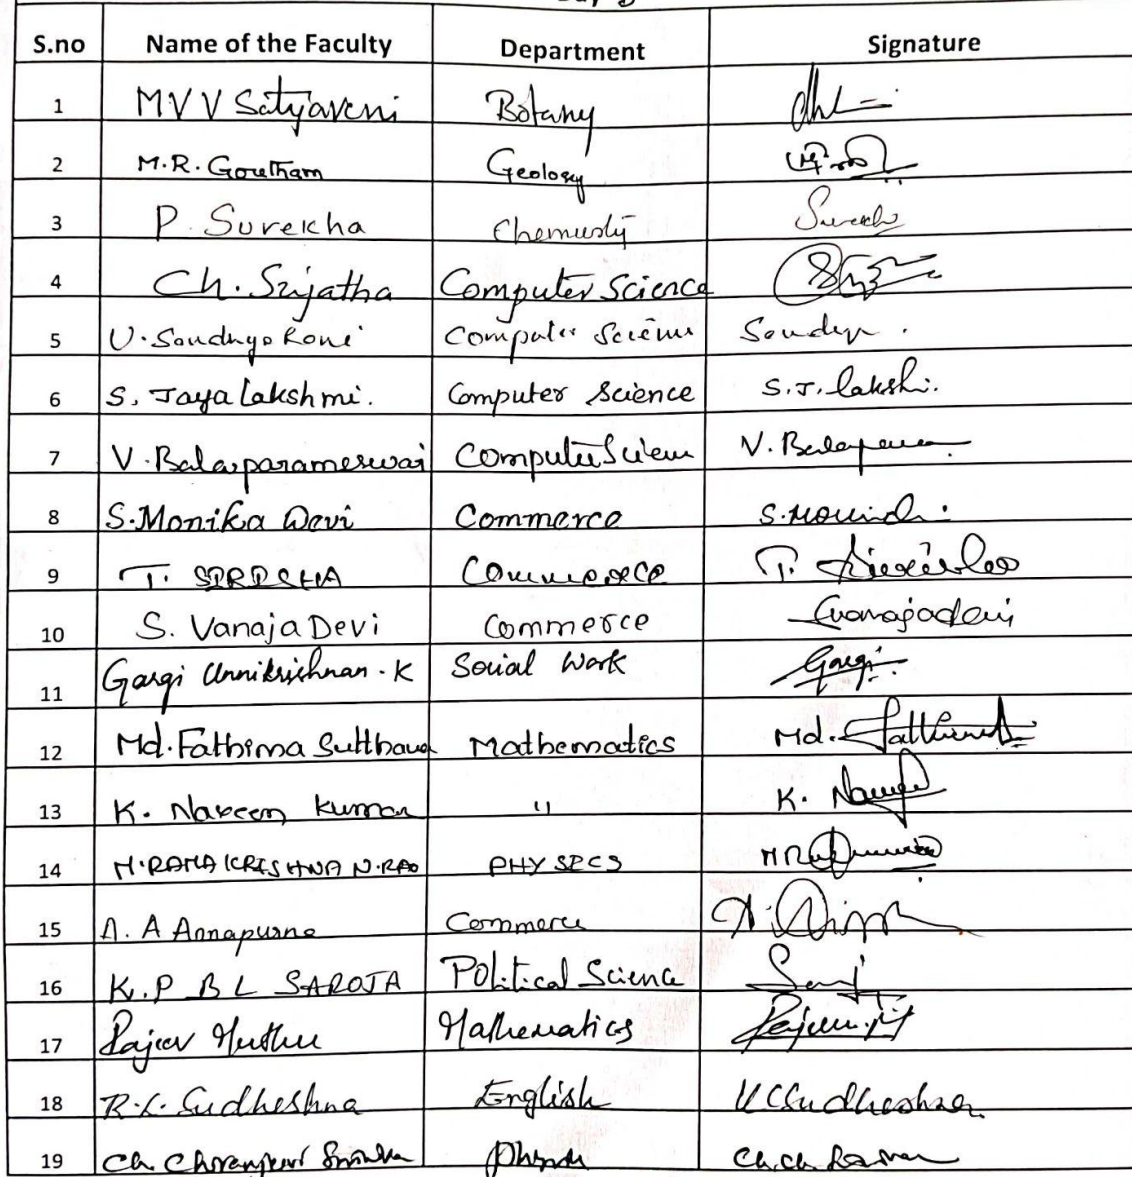 S.no Name of the Faculty Department Signature
1 MVV Satyaveni Botany
2 M.R. Goutham Geology
3 P. Surekha Chemistry Surekha
4 Ch. Srijatha Computer Science
5 U. Sandhya Rani Computer Science Sandhya.
6 S. Jaya Lakshmi. Computer Science S.J. Lakshi.
7 V. Balaparameswari Computer Science V.
8 S. Monika Devi Commerce
9 T. Commerce T.
10 S. Vanaja Devi Commerce S Vanajadevi
11 Gargi Unnikrishnan. K Social Work Gargi
12 Md. Fathima Sulthana Mathematics Md. Fathima
13 K. Naveen Kumar " K.
14 M. RAMA KRISHNA N. RAO PHYSICS
15 A. A Annapurna Commerce
16 K. P B L SAROJA Political Science
17 Rajeev Muthu Mathematics
18 R.C. Sudheshna English KCSudheshna
19 Ch. Chiranjeevi Physics Ch. Ch.